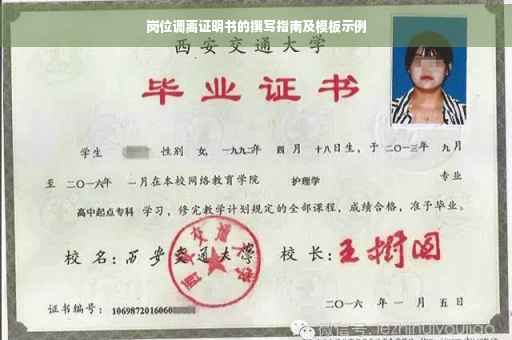 岗位调离证明书的撰写指南及模板示例
西安交通大学
毕业证书
学生 性别 女, 一九九二年 四 月 十八日生, 于 二〇一三年 九月
至 二〇一六年 一月在本校网络教育学院 护理学 专业
高中起点专科 学习, 修完教学计划规定的全部课程, 成绩合格, 准予毕业。
校 名: 西安交通大学 校 长: 王树国
西安交通大学
证书编号: 1069872016060
二〇一六 年 一 月 五 日
微信号: jezhinuiyoujiao